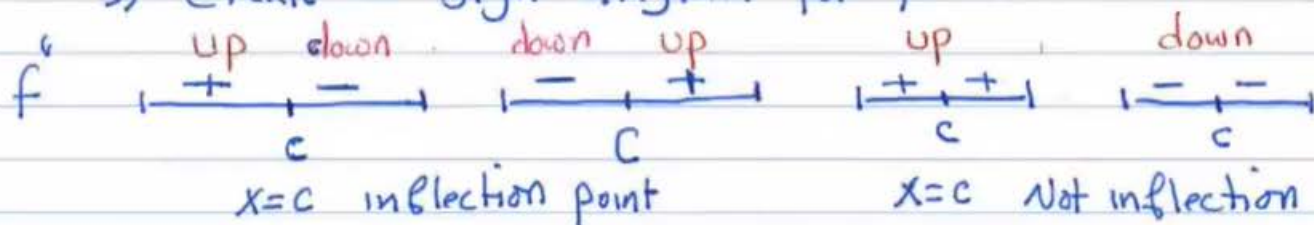 up down down up up down
f" + - - + + + - -
c C c c
x=c inflection point x=c Not inflection